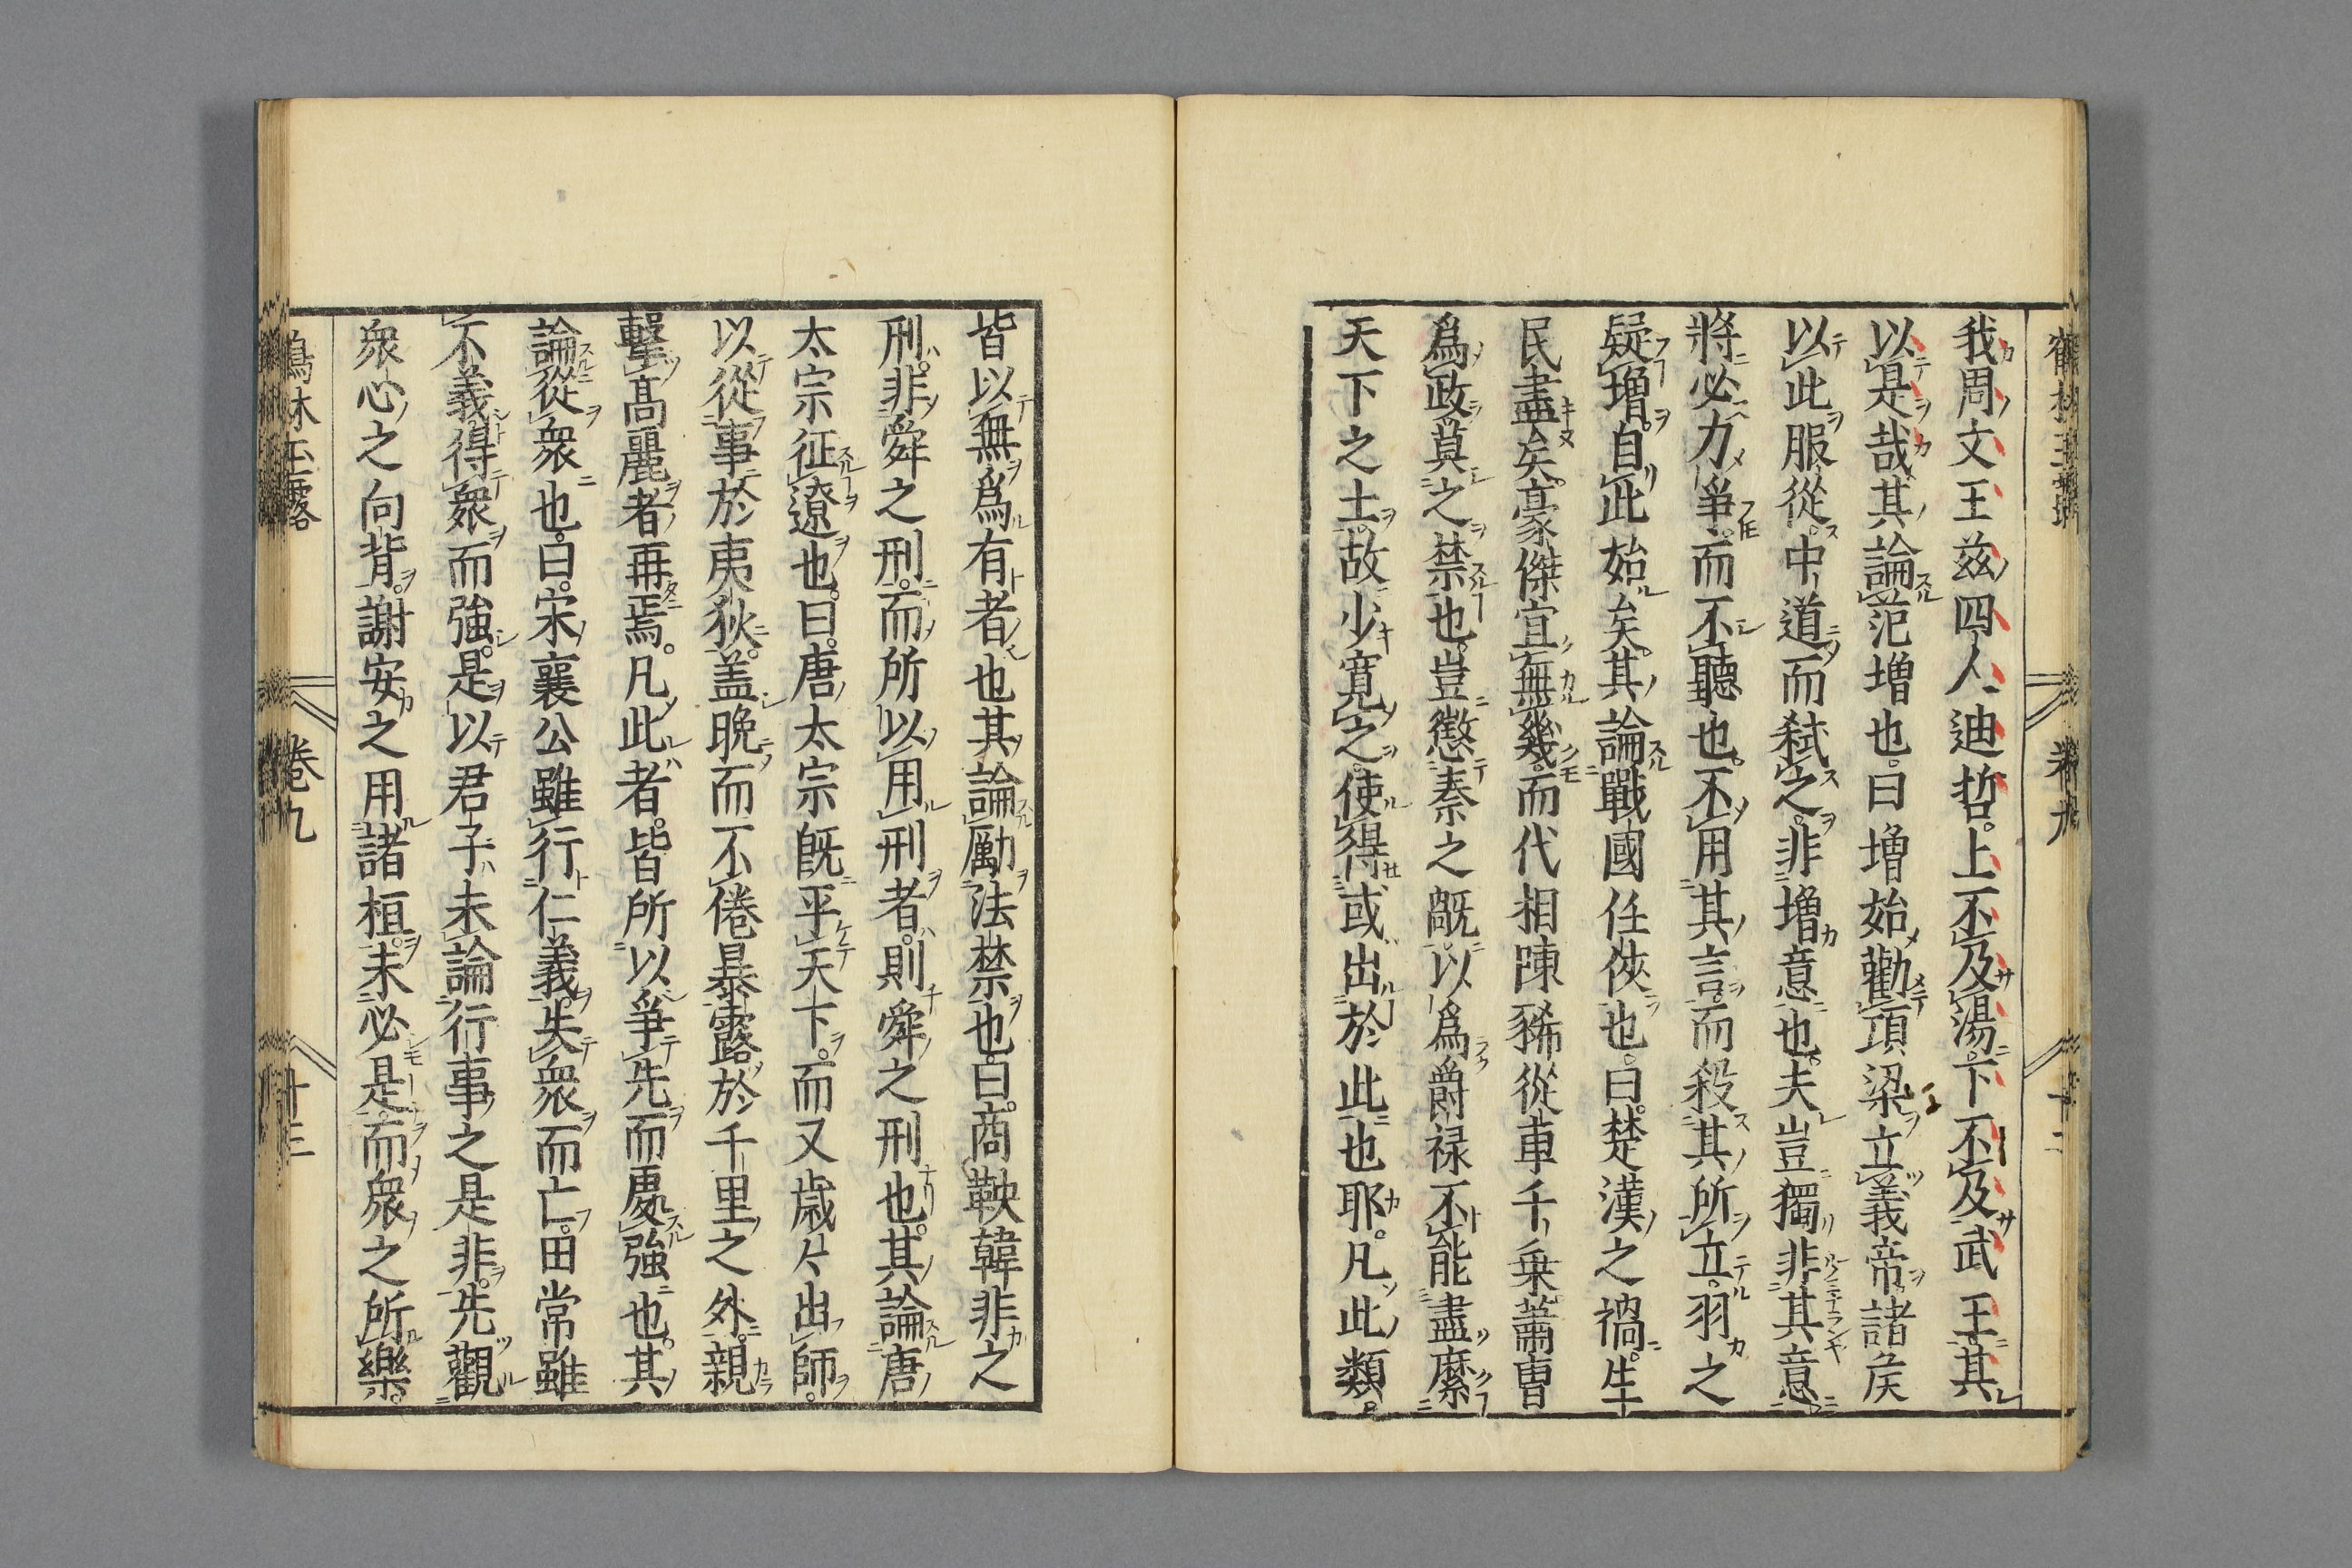 我周文王茲四人迪哲。上不及湯。下不及武王。其
以是哉。其論范増也。曰増始勸項梁立義帝。諸矦
以此服從。中道而弑之。非増意也。夫豈獨非其意
將必力爭。而不聽也。不用其言。而殺其所立。羽之
疑増。自此始矣。其論戰國任俠也。曰。楚漢之禍。生
民盡矣。豪傑宜無幾。而代相陳豨從車千乗。蕭曹
爲政莫之禁也。豈懲秦之既。以爲爵禄不能盡縻
天下之士。故少寛之。使得或出於此也耶。凡此類。
皆以無爲有者也其論勵法禁也。曰。商鞅韓非之
刑。非舜之刑。而所以用刑者。則舜之刑也。其論唐
太宗征遼也。曰。唐太宗既平天下。而又歳〻出師。
以從事於夷狄。盖晩而不倦暴露於千里之外。親
擊高麗者再焉。凡此者。皆所以爭先而處強也。其
論從衆也。曰。宋襄公雖行仁義。失衆而亡。田常雖
不義。得衆而強。是以君子未論行事之是非。先觀
衆心之向背。謝安之用諸桓。未必是。而衆之所樂。
鶴林玉露
卷九
十三